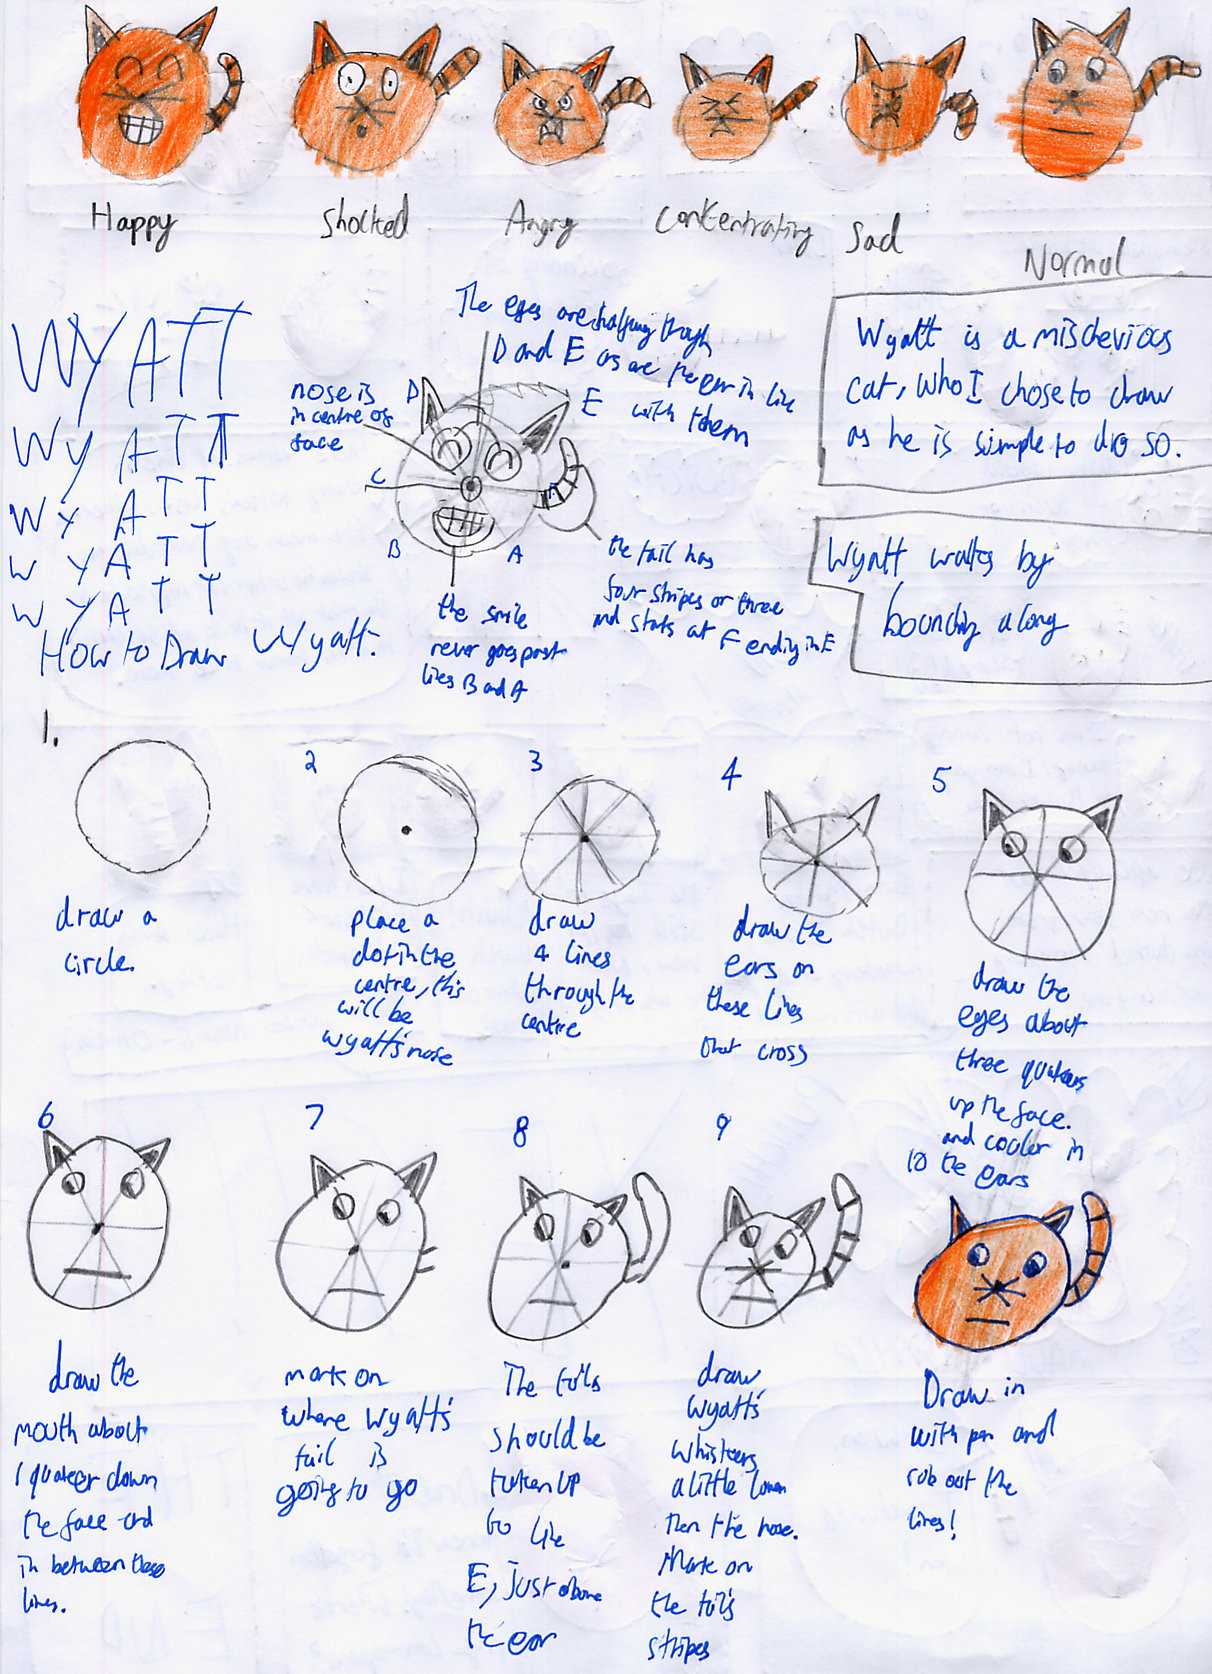 Happy
Shocked
Angry
Concentrating
Sad
Normal
WYATT
WYATT
WYATT
WYATT
WYATT
How to Draw Wyatt.
The eyes are halfway through
D and E as are the ear in line
with them
nose is
in centre of
face
D
E
C
F
B
A
the smile
never goes past
lines B and A
the tail has
four stripes or three
and stats at F ending in E
Wyatt is a mischevios
cat, who I chose to draw
as he is simple to do so.
Wyatt walks by
bounding along
1.
draw a
circle.
2
place a
dot in the
centre, this
will be
wyatt's nose
3
draw
4 lines
through the
centre
4
draw the
ears on
these lines
that cross
5
draw the
eyes about
three quaters
up the face.
and couler in
the ears
6
draw the
mouth about
1 quateer down
the face and
in between these
lines.
7
mark on
where Wyatt's
tail is
going to go
8
The tails
should be
taken up
to line
E, just above
the ear
9
draw
Wyatt's
whiskers
a little lower
then the nose.
Mark on
the tail's
stripes
10
Draw in
with pen and
rub out the
lines!